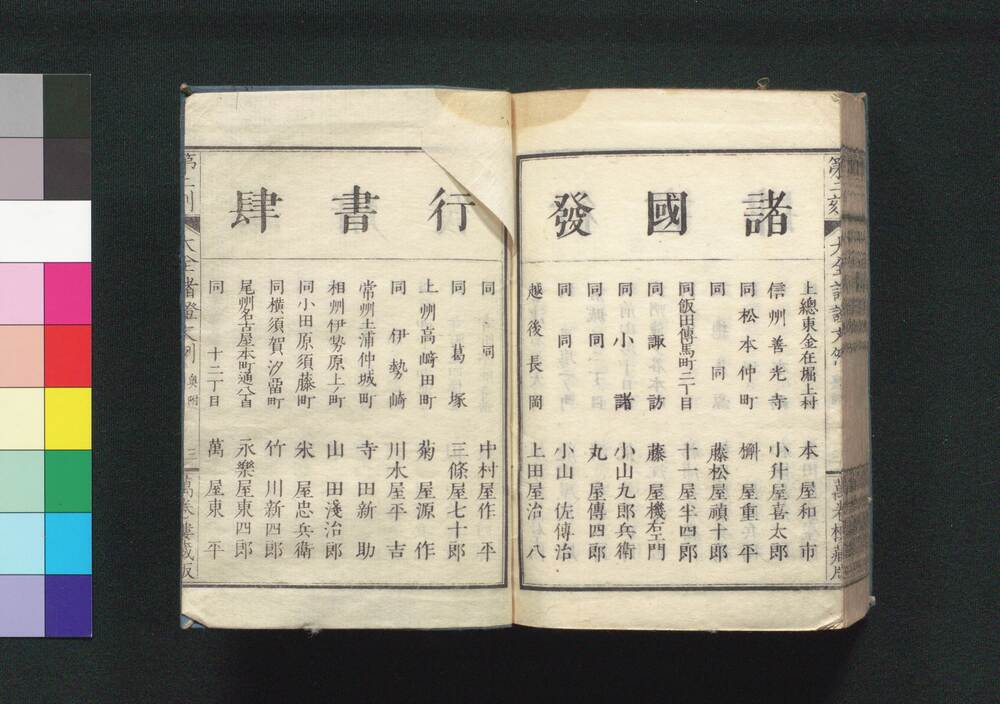 諸國發
上總東金在堀上村 本屋和市
信州善光寺 小升屋喜太郎
同松本仲町 槲屋重平
同 同 藤松屋禎十郎
同飯田傳馬町二丁目 十一屋半四郎
同諏訪 藤屋機右エ門
同小諸 小山九郎兵衛
同 同 丸屋傳四郎
同 同 小山佐傳治
越後長岡 上田屋治八
行書肆
同 同 中村屋作平
同葛塚 三條屋七十郎
上州高﨑田町 菊屋源作
同伊勢崎 川木屋平吉
常州土浦仲城町 寺田新助
相州伊勢原上町 山田淺治郎
同小田原須藤町 米屋忠兵衛
同横須賀汐留町 竹川新四郎
尾州名古屋本町通八丁目 永樂屋東四郎
同十二丁目 萬屋東平
奥附 三